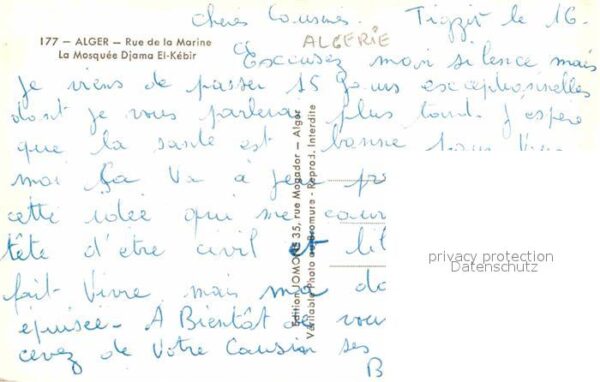 chères Cousines. Tigzit le 16-
177 – ALGER – Rue de la Marine
La Mosquée Djama El-Kébir
ALGERIE
Excusez mon silence mais
je viens de passer 15 jours exceptionnelles
dont je vous parlerai plus tard. J'espère
que la santé est bonne pour
moi ça va à
cette idée qui me
tête d'être civil et
fait vivre mais ma
épuisée - A Bientôt de
cevez de Votre Cousin ses
B
Edition JOMONE 35, rue Mogador – Alger
Véritable Photo au Bromure - Reprod. Interdite
privacy protection
Datenschutz